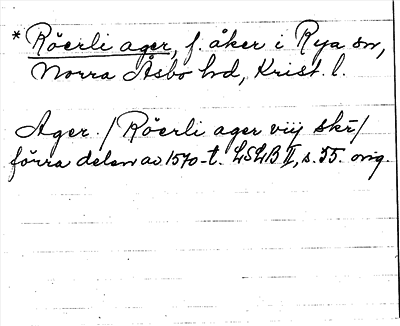 * Röerli ager, f. åker i Rya sn,
Norra Åsbo hd, Krist. l.
Ager. / Röerli ager viij skr /
förra delen av 1570-t. LSLB II, s. 55. orig.